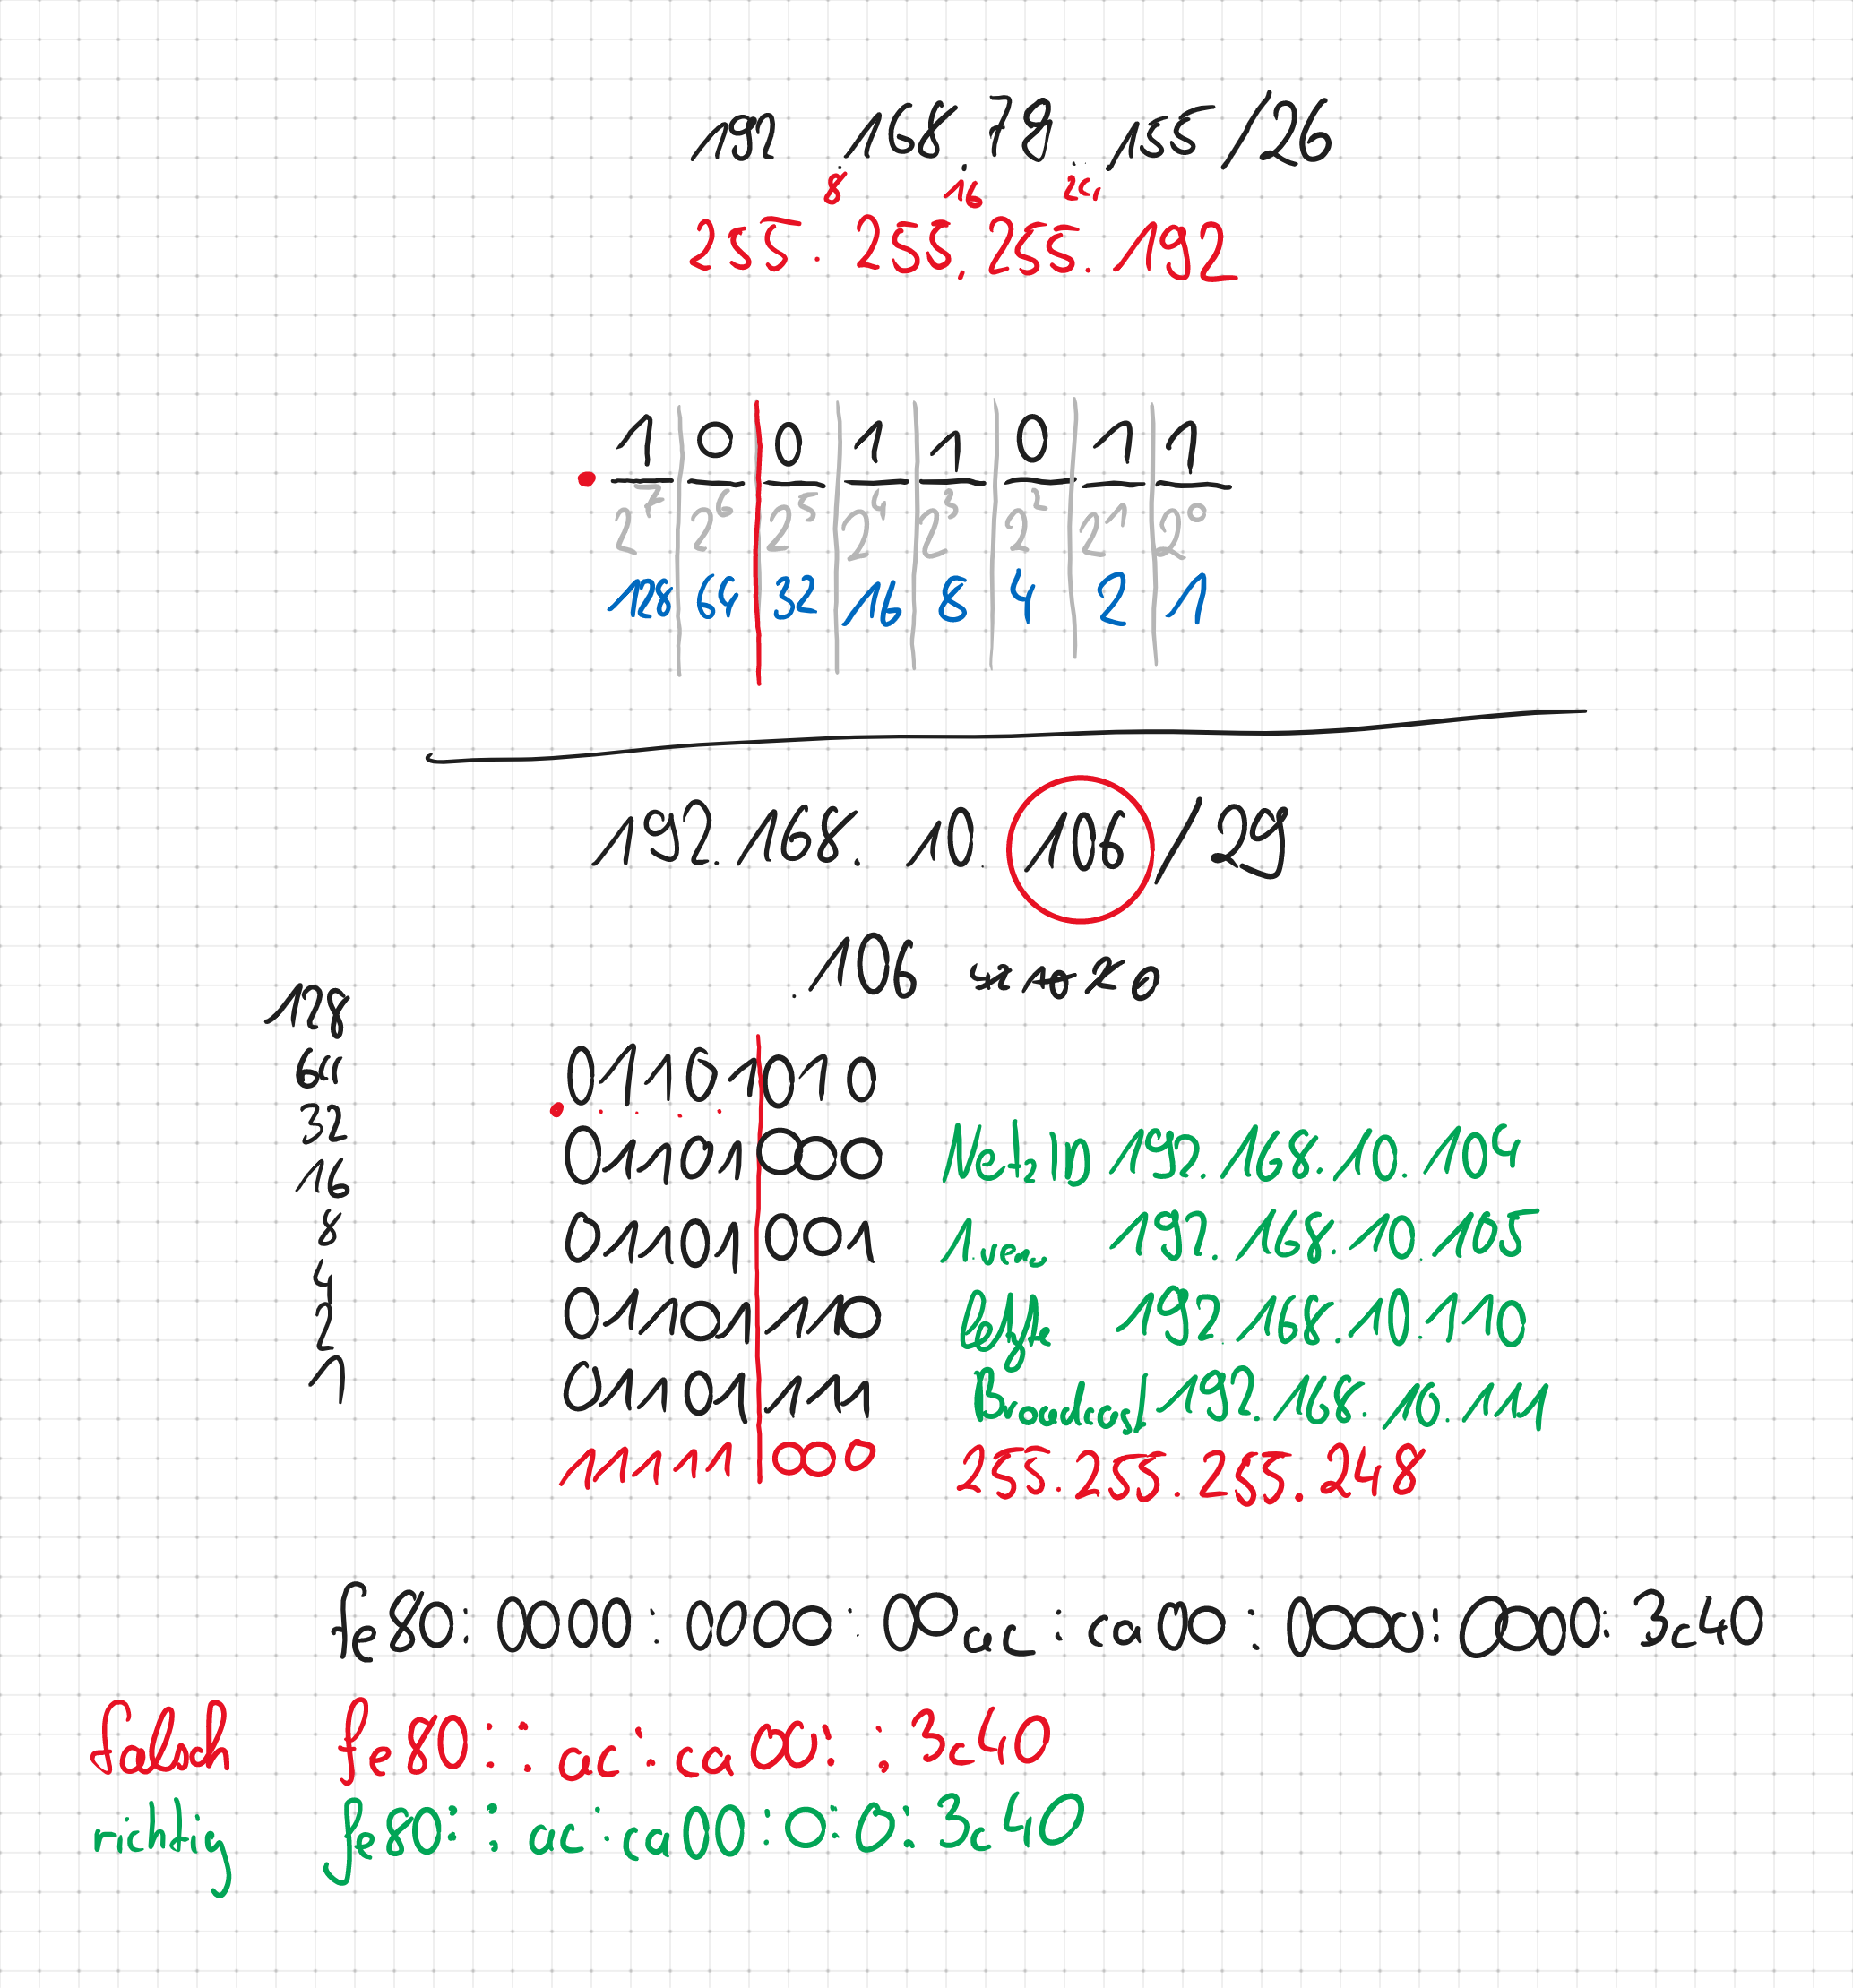 192.168.78.155/26
8 16 24
255.255.255.192
1 0 0 1 1 0 1 1
2^7 2^6 2^5 2^4 2^3 2^2 2^1 2^0
128 64 32 16 8 4 2 1
192.168.10.106/29
.106 42 10 2 0
128
64
32
16
8
4
2
1
01101010
01101000 Netz ID 192.168.10.104
01101001 1. verw. 192.168.10.105
01101110 letzte 192.168.10.110
01101111 Broadcast 192.168.10.111
11111000 255.255.255.248
fe80:0000:0000:00ac:ca00:0000:0000:3c40
falsch fe80::ac:ca00::3c40
richtig fe80::ac:ca00:0:0:3c40